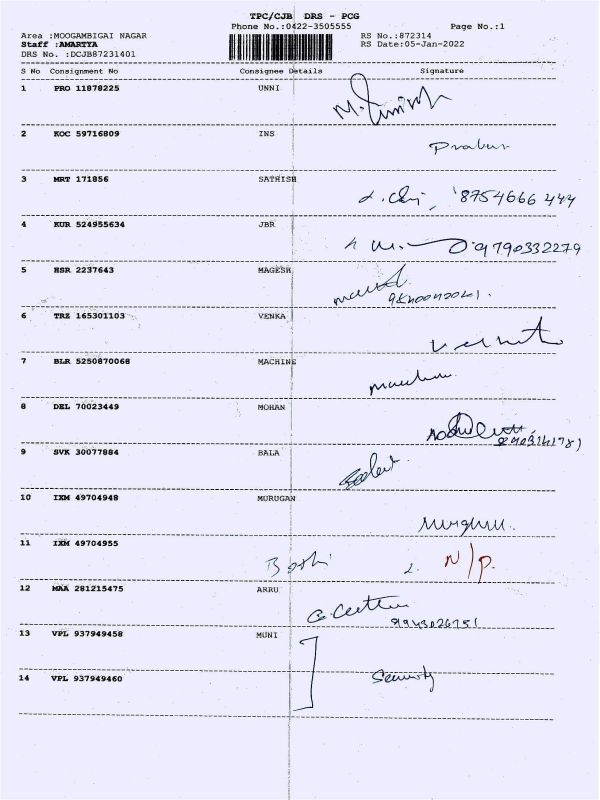 TPC/CJB DRS - PCG
Phone No.:0422-3505555 Page No.:1
Area :MOOGAMBIGAI NAGAR RS No.:872314
Staff :AMARTYA RS Date:05-Jan-2022
DRS No. :DCJB87231401
S No Consignment No Consignee Details Signature
1 PRO 11878225 UNNI
2 KOC 59716809 INS Prabu
3 MRT 171856 SATHISH 8754666 444
4 KUR 524955634 JBR 9790332279
5 HSR 2237643 MAGESH
6 TRZ 165301103 VENKA
7 BLR 5250870068 MACHINE
8 DEL 70023449 MOHAN
9 SVK 30077884 BALA
10 IXM 49704948 MURUGAN
11 IXM 49704955 N/P.
12 MAA 281215475 ARRU
13 VPL 937949458 MUNI
14 VPL 937949460 Security